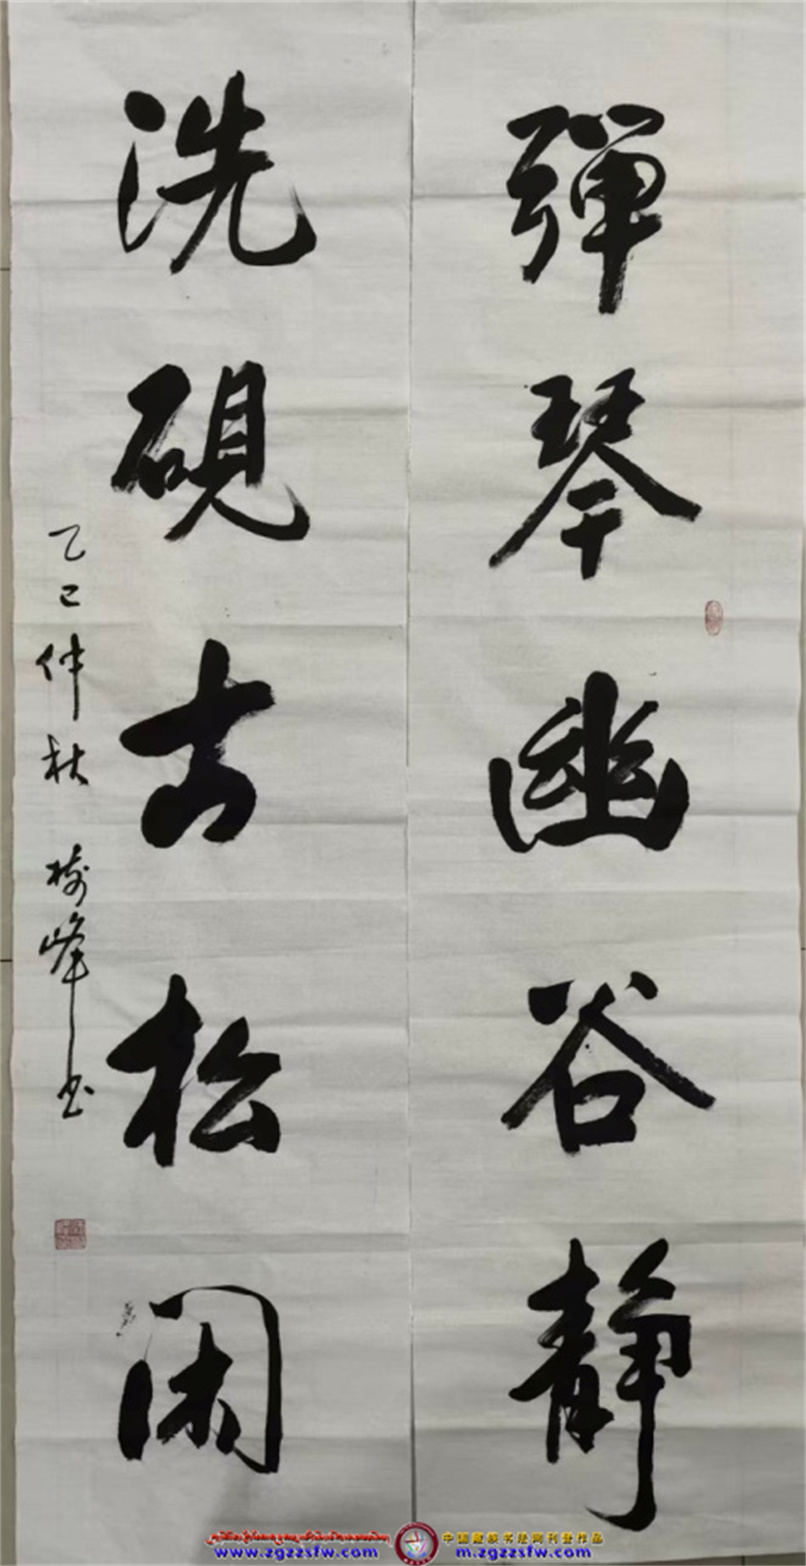 彈琴幽谷静
洗硯古松闲
乙巳仲秋 樹峰书
中国藏族书法网刊登作品
www.zgzzsfw.com m.zgzzsfw.com